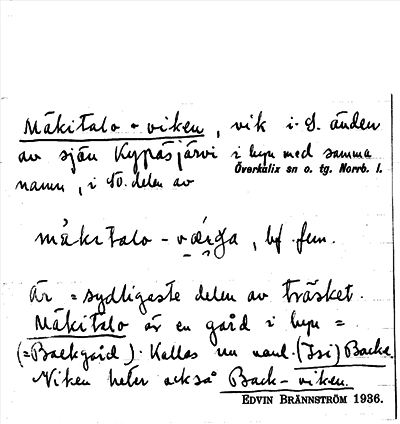 Mäkitalo-viken, vik i S. änden
av sjön Kypäsjärvi i byn med samma
Överkalix sn o. tg. Norrb. l.
namn, i delen av
måkitalo-værga, bf. fem.
Är = sydligaste delen av träsket.
Mäkitalo är en gård i byn =
(=Backgård). Kallas nu vanl. (Isi) Backe.
Viken heter också Back-viken.
EDVIN BRÄNNSTRÖM 1936.